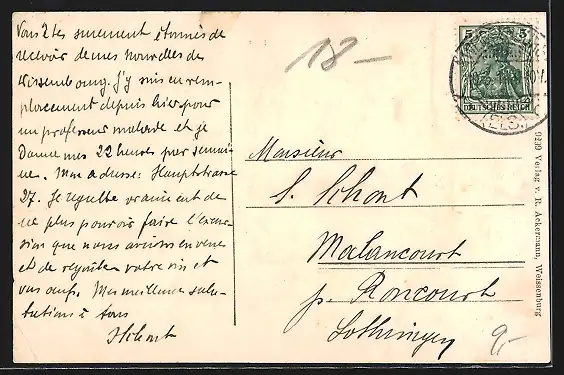 Vous êtes surement étonnés de
recevoir de mes nouvelles de
Wissembourg. J'y suis en rem-
placement depuis hier pour
un professeur malade et je
donne mes 22 heures par semai-
ne. Mon adresse: Hauptstrasse
27. Je regrette vraiment de
ne plus pouvoir faire l'excur-
sion que nous avions en vue
et de votre vin et
vos œufs. Mes meilleures salu-
tations à tous
Schont
18-
5 5
DEUTSCHES REICH
Monsieur
S. Schont
Malancourt
p. Roncourt
Lothringen
9,-
9239 Verlag v. R. Ackermann, Weissenburg